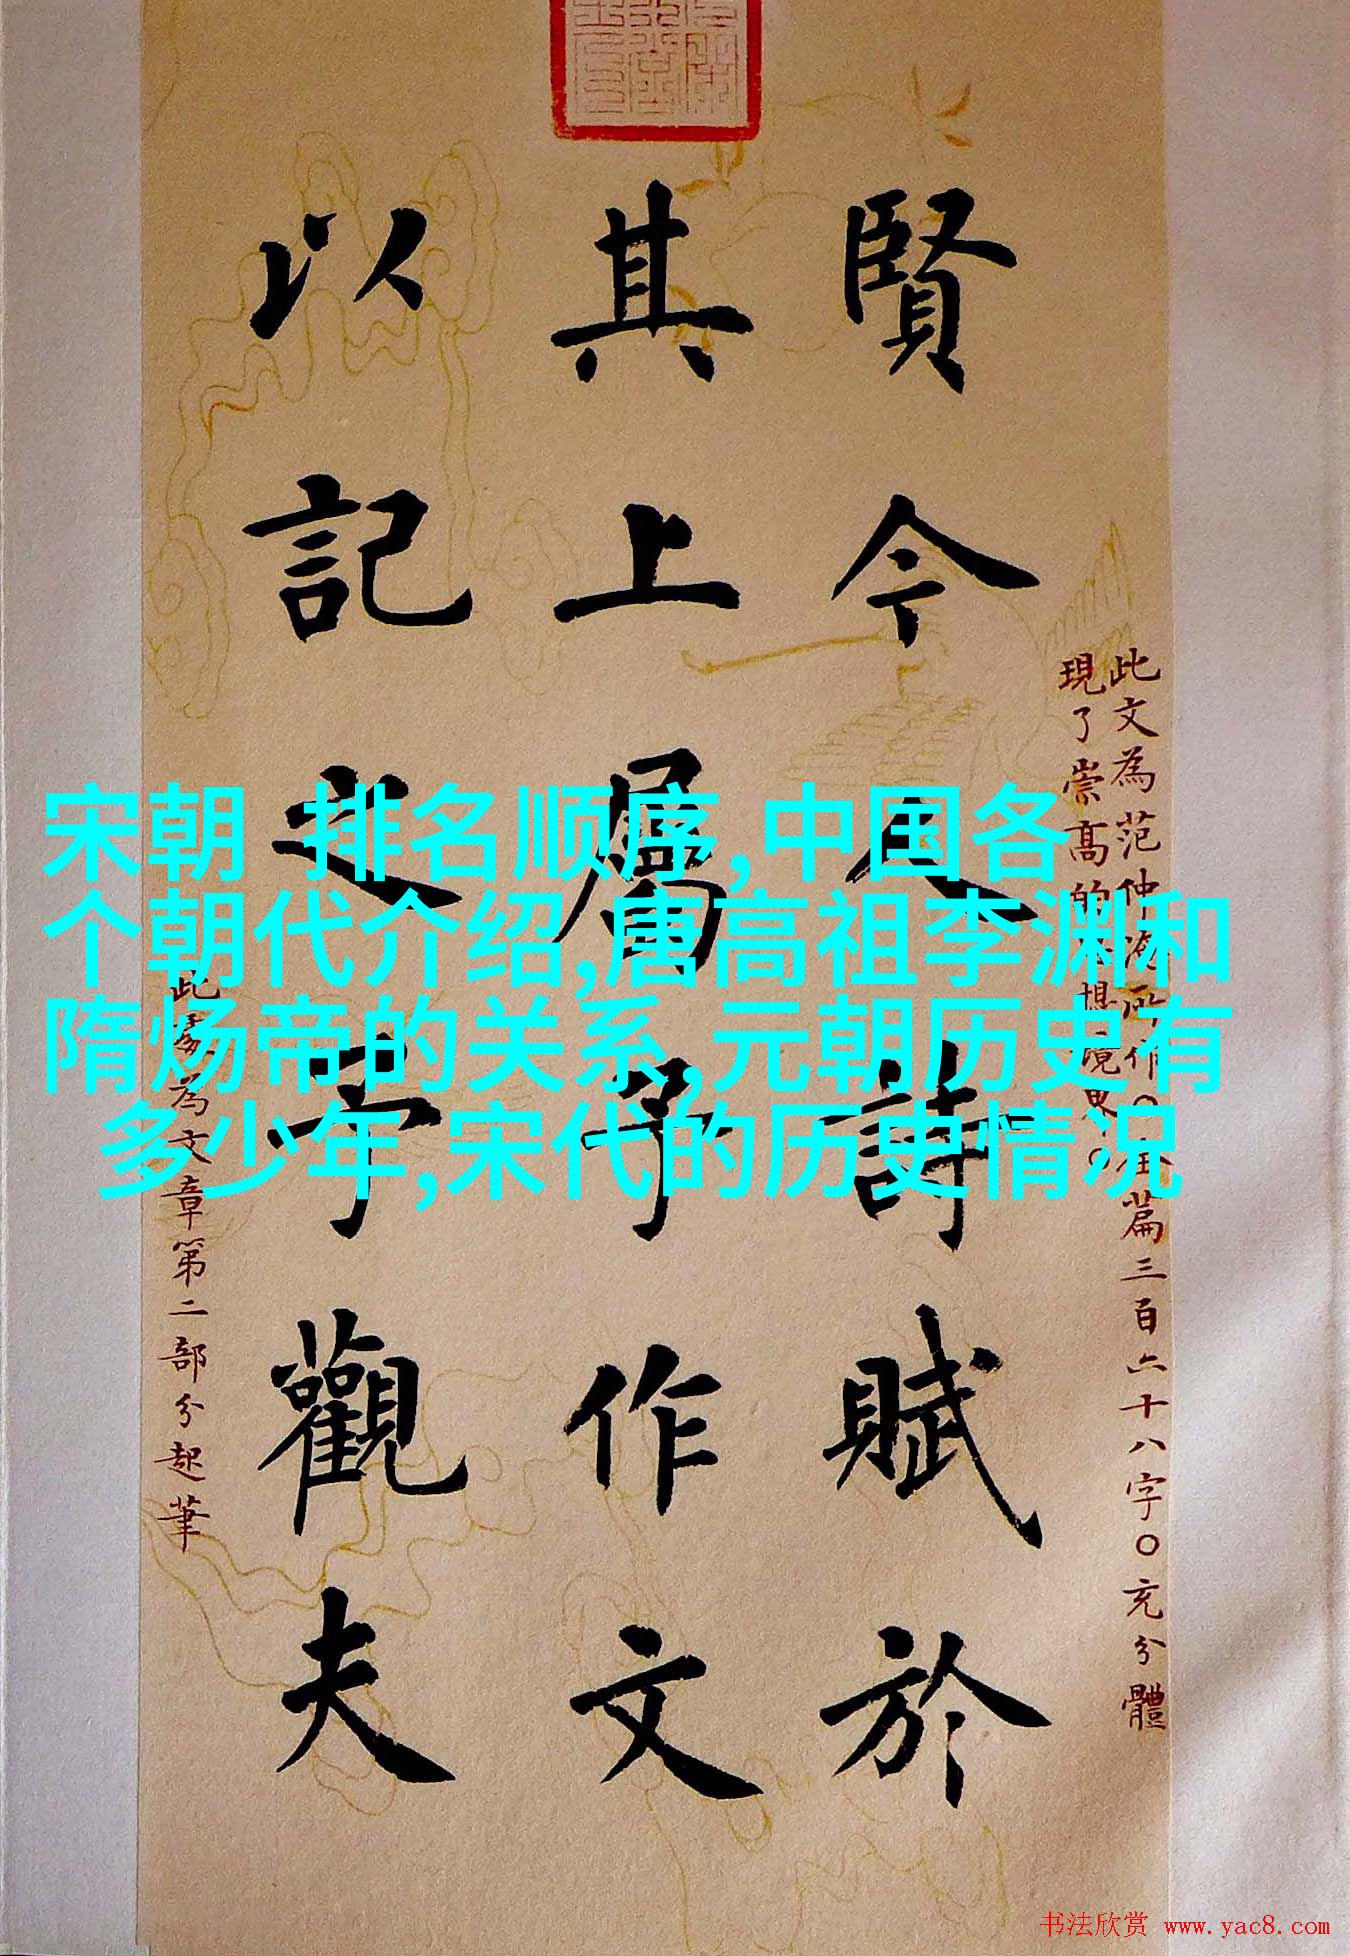 此文為范仲淹所作〇全篇三百六十八字〇充分體
現了崇高的思想境界。
賢今人詩賦於
其上屬予作文
以記之予觀夫
此處為文章第二部分起筆
宋朝 排名顺序,中国各
个朝代介绍,唐高祖李渊和
隋炀帝的关系,元朝历史有
多少年,宋代的历史情况
书法欣赏 www.yac8.com